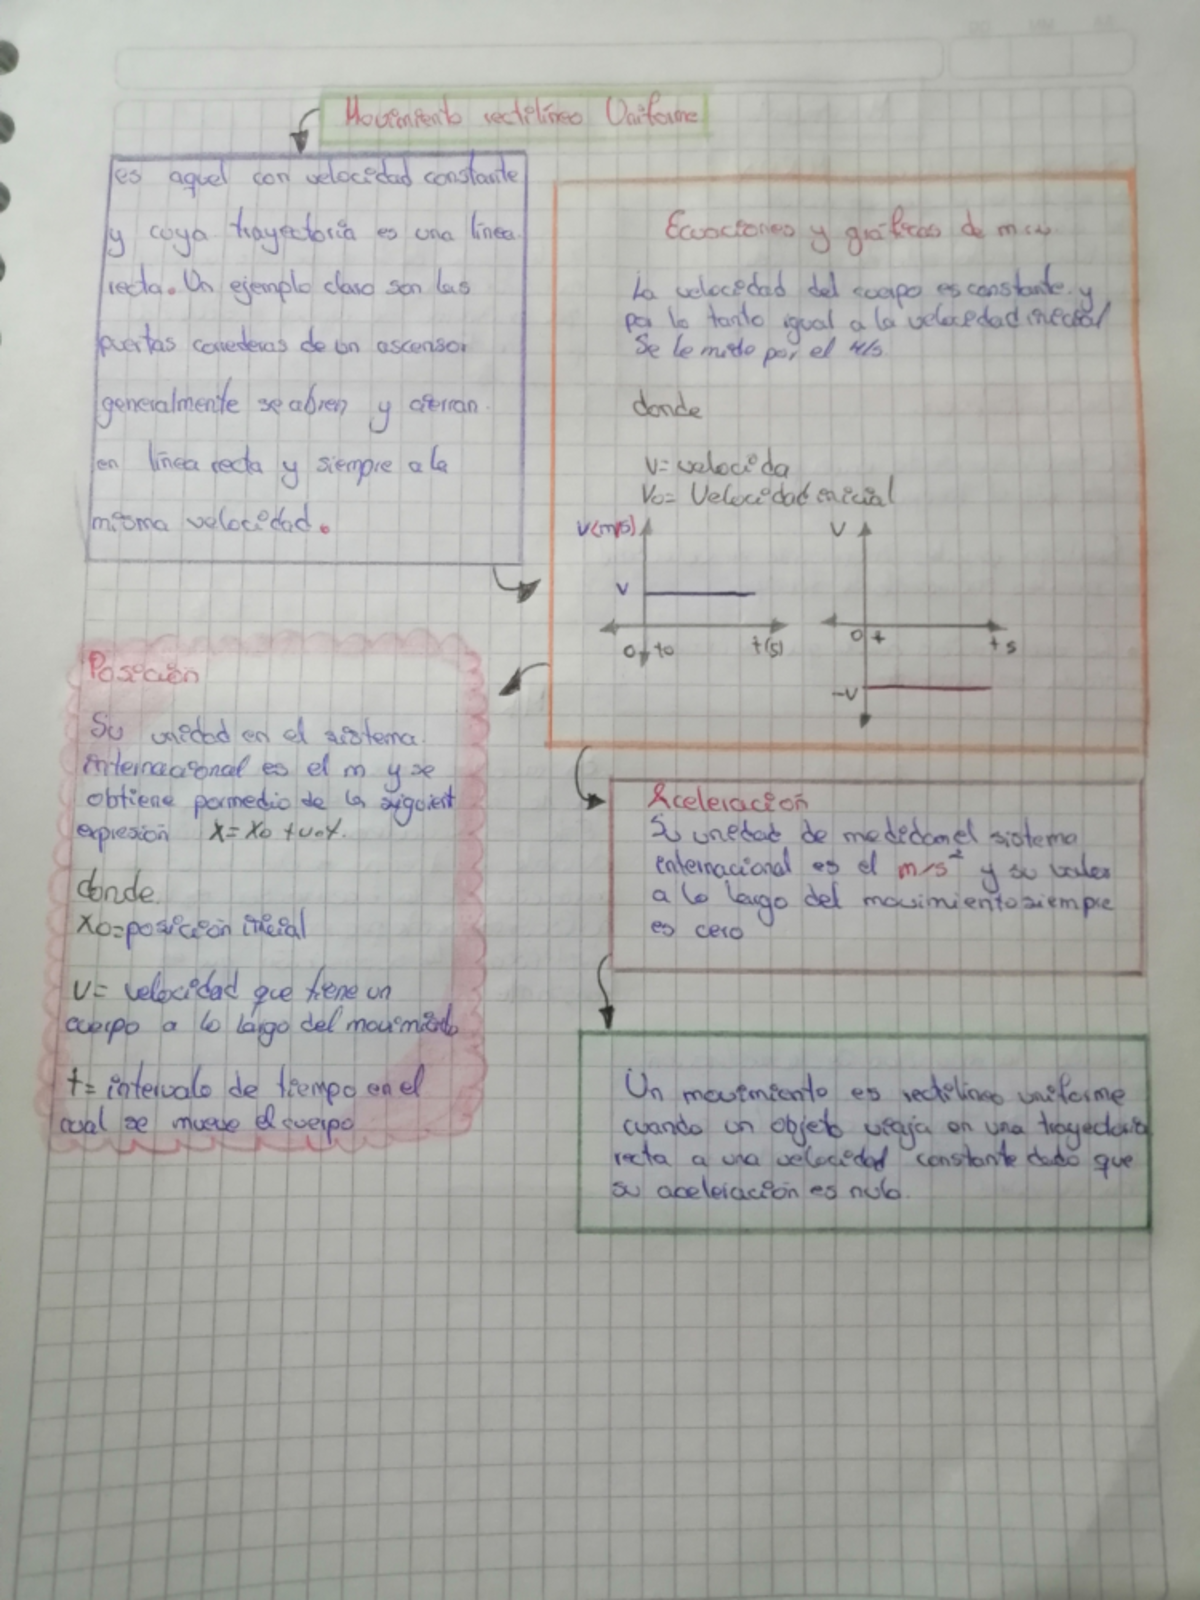 Movimiento rectilíneo Uniforme
es aquel con velocidad constante
y cuya trayectoria es una línea
recta. Un ejemplo claro son las
puertas correderas de un ascensor
generalmente se abren y cierran
en línea recta y siempre a la
misma velocidad.
Ecuaciones y gráficas de m.r.u
La velocidad del cuerpo es constante y
por lo tanto igual a la velocidad inicial
Se le mide por el
donde
V= velocida
Vo= Velocidad inicial
V(m/s)
V
0 to t(s)
V
0 t t s
-V
Posición
Su unidad en el sistema
internacional es el m y se
obtiene pormedio de la siguient
expresión X= Xo + vo.t.
donde
Xo=posición inicial
V= velocidad que tiene un
cuerpo a lo largo del movimiento
t= intervalo de tiempo en el
cual se mueve el cuerpo
Aceleración
Su unidad de medida en el sistema
internacional es el m/s² y su valor
a lo largo del movimiento siempre
es cero
Un movimiento es rectilíneo uniforme
cuando un objeto viaja en una trayectoria
recta a una velocidad constante dado que
su aceleración es nula.